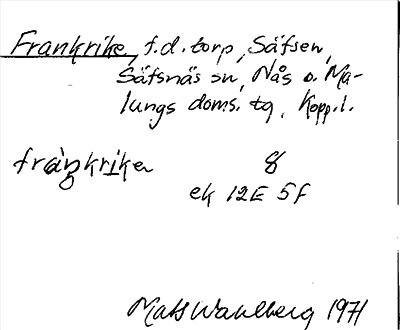 Frankrike, f.d. torp, Säfsen,
Säfsnäs sn, Nås o. Ma-
lungs doms. tg, Kopp. l.
fràŋkrìka 8
ek 12E 5f
Mats Wahlberg 1971